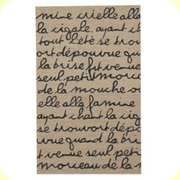 mine vielle alla
la cigale, ayant
tout l'été se tro
ort dépourvue qua
la brise fit venue
seul petit morceau
de la mouche o
elle alla famine
ayant chant la cig
se trouvort dépo
vue quand la bri
fit venue seul pet
morceau de la m